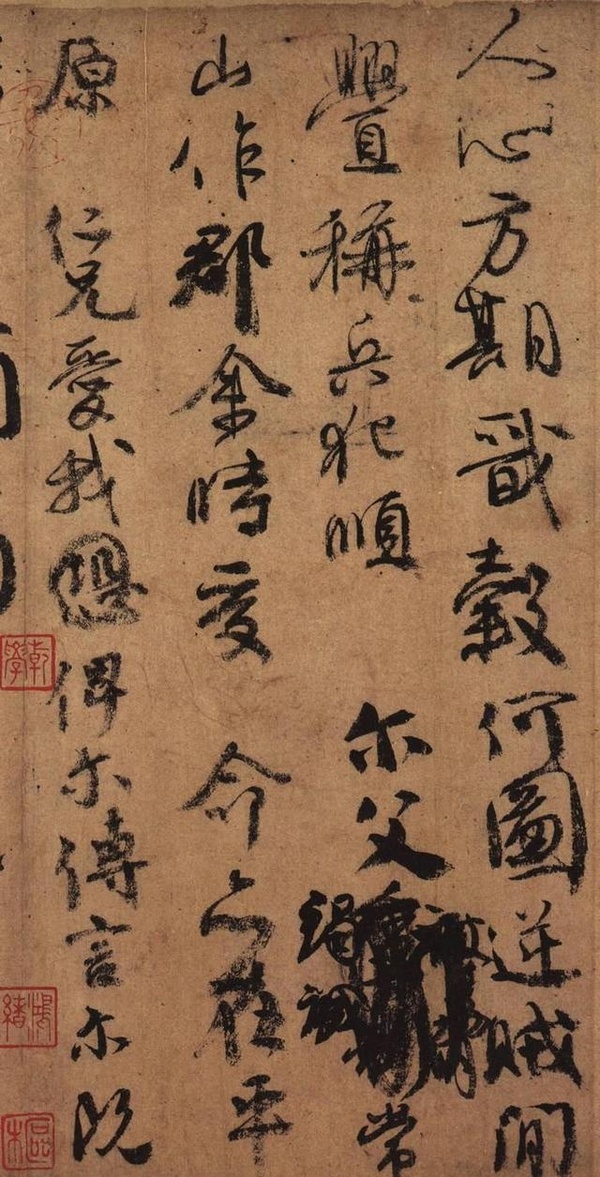 人心方期戩穀何圖逆賊間
釁稱兵犯順尔父竭誠常
山作郡余時受命亦在平
原仁兄愛我恐俾尔傳言尔既